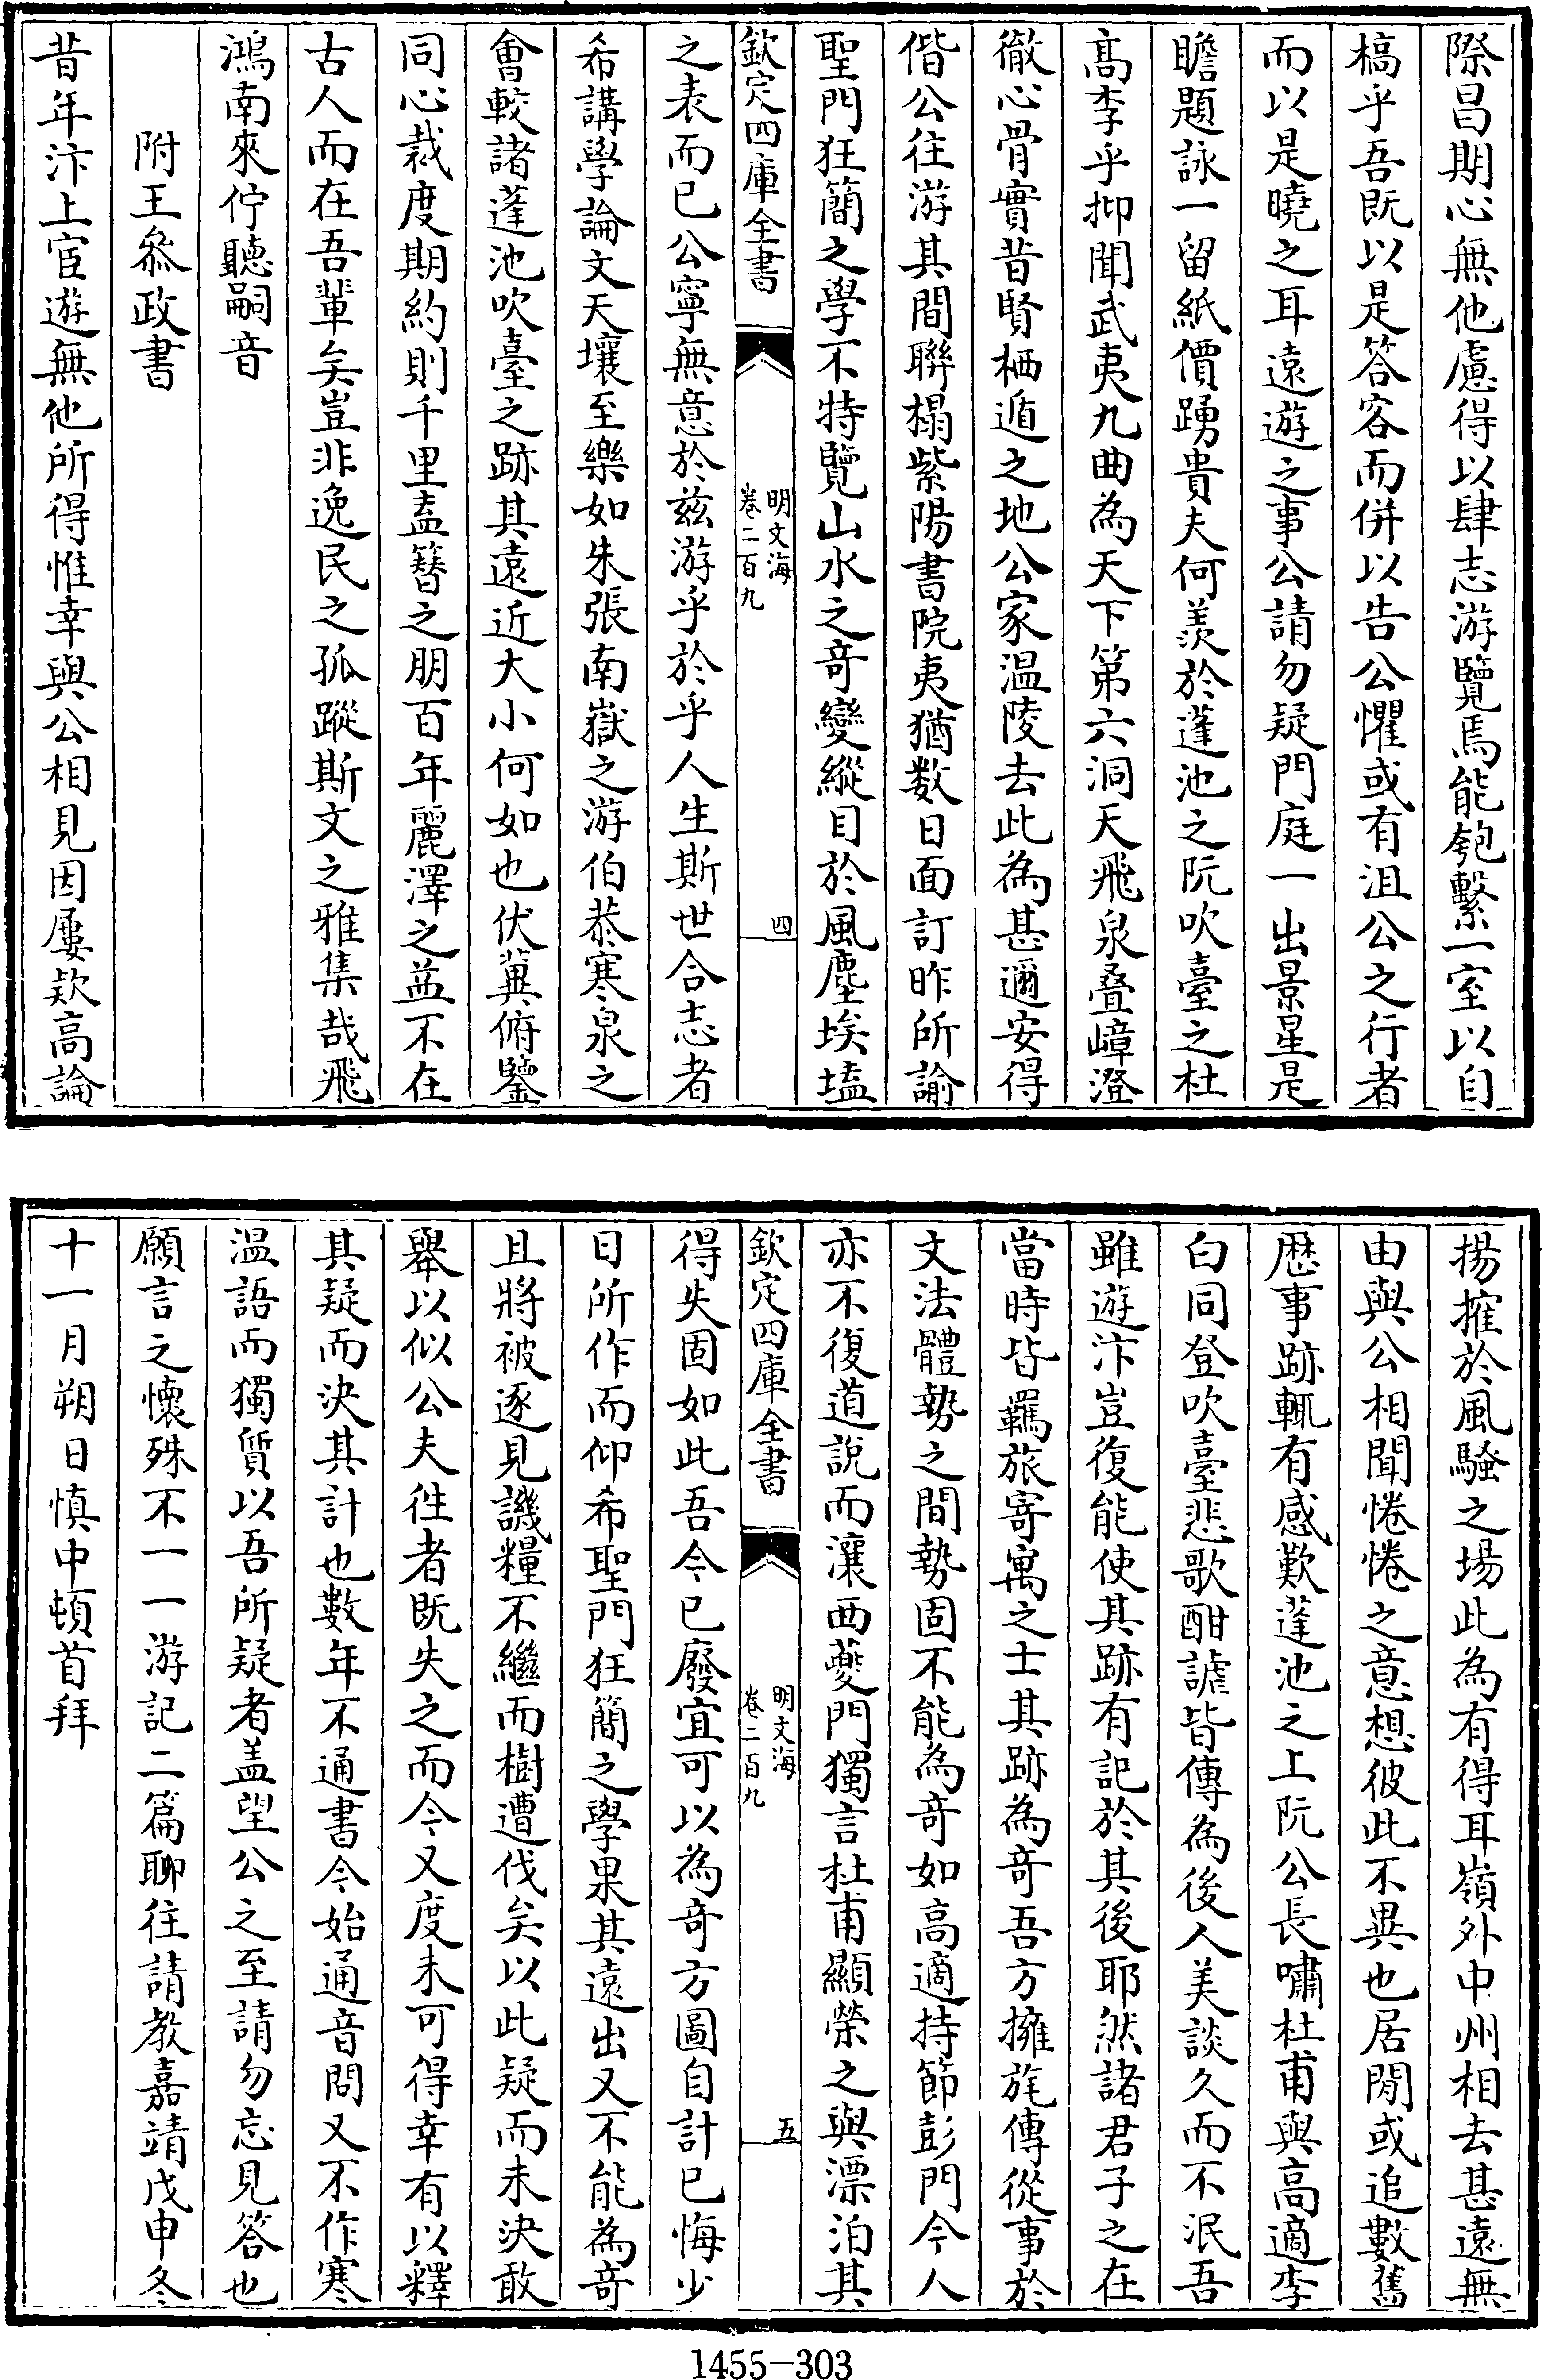 際昌期心無他慮得以肆志游覽焉能匏繫一室以自
槁乎吾既以是答客而併以告公懼或有沮公之行者
而以是曉之耳遠遊之事公請勿疑門庭一出景星是
瞻題詠一留紙價踴貴夫何羨於蓬池之阮吹臺之杜
高李乎抑聞武夷九曲為天下第六洞天飛泉疊嶂澄
徹心骨實昔賢栖遁之地公家温陵去此為甚邇安得
偕公往游其間聯榻紫陽書院夷猶数日面訂昨所諭
聖門狂簡之學不特覽山水之竒變縱目於風塵埃壒
欽定四庫全書
明文海
卷二百九
四
之表而已公寧無意於兹游乎於乎人生斯世合志者
希講學論文天壤至樂如朱張南嶽之游伯恭寒泉之
會較諸蓬池吹臺之跡其遠近大小何如也伏冀俯鑒
同心裁度期約則千里盍簪之朋百年麗澤之益不在
古人而在吾軰矣豈非逸民之孤蹤斯文之雅集哉飛
鴻南來佇聽嗣音
附王叅政書
昔年汴上宦遊無他所得惟幸與公相見因屢欵高論
揚搉於風騷之場此為有得耳嶺外中州相去甚遠無
由與公相聞惓惓之意想彼此不異也居閒或追數舊
歴事跡輒有感歎蓬池之上阮公長嘯杜甫與高適李
白同登吹臺悲歌酣謔皆傳為後人美談久而不泯吾
雖遊汴豈復能使其跡有記於其後耶然諸君子之在
當時皆羈旅寄寓之士其跡為竒吾方擁旄傳從事於
文法體勢之間勢固不能為竒如高適持節彭門今人
亦不復道說而瀼西夔門獨言杜甫顯榮之與漂泊其
欽定四庫全書
明文海
卷二百九
五
得失固如此吾今已廢宜可以為竒方圖自計已悔少
日所作而仰希聖門狂簡之學果其遠出又不能為竒
且將被逐見譏糧不繼而樹遭伐矣以此疑而未決敢
舉以似公夫徃者既失之而今又度未可得幸有以釋
其疑而決其計也數年不通書今始通音問又不作寒
温語而獨質以吾所疑者盖望公之至請勿忘見答也
願言之懷殊不一一游記二篇聊往請教嘉靖戊申冬
十一月朔日慎中頓首拜
1455—303